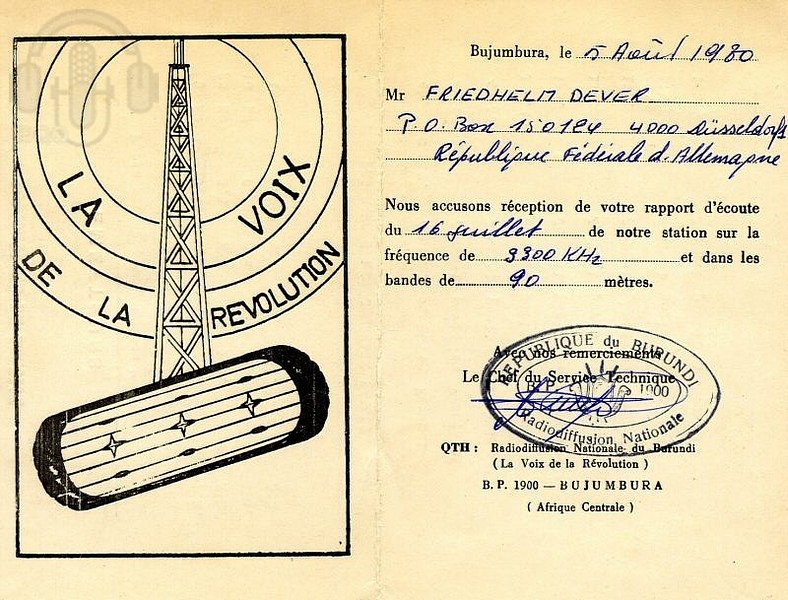 LA VOIX
DE LA REVOLUTION
Bujumbura, le 5 Août 1980
Mr FRIEDHELM DEVER
P.O. Box 150124 4000 Düsseldorf 1
République Fédérale d'Allemagne
Nous accusons réception de votre rapport d'écoute
du 16 Juillet de notre station sur la
fréquence de 3300 KHz et dans les
bandes de 90 mètres.
Avec nos remerciements
Le Chef du Service Technique
REPUBLIQUE du BURUNDI
B.P. 1900
Radiodiffusion Nationale
QTH : Radiodiffusion Nationale du Burundi
( La Voix de la Révolution )
B.P. 1900 — BUJUMBURA
( Afrique Centrale )